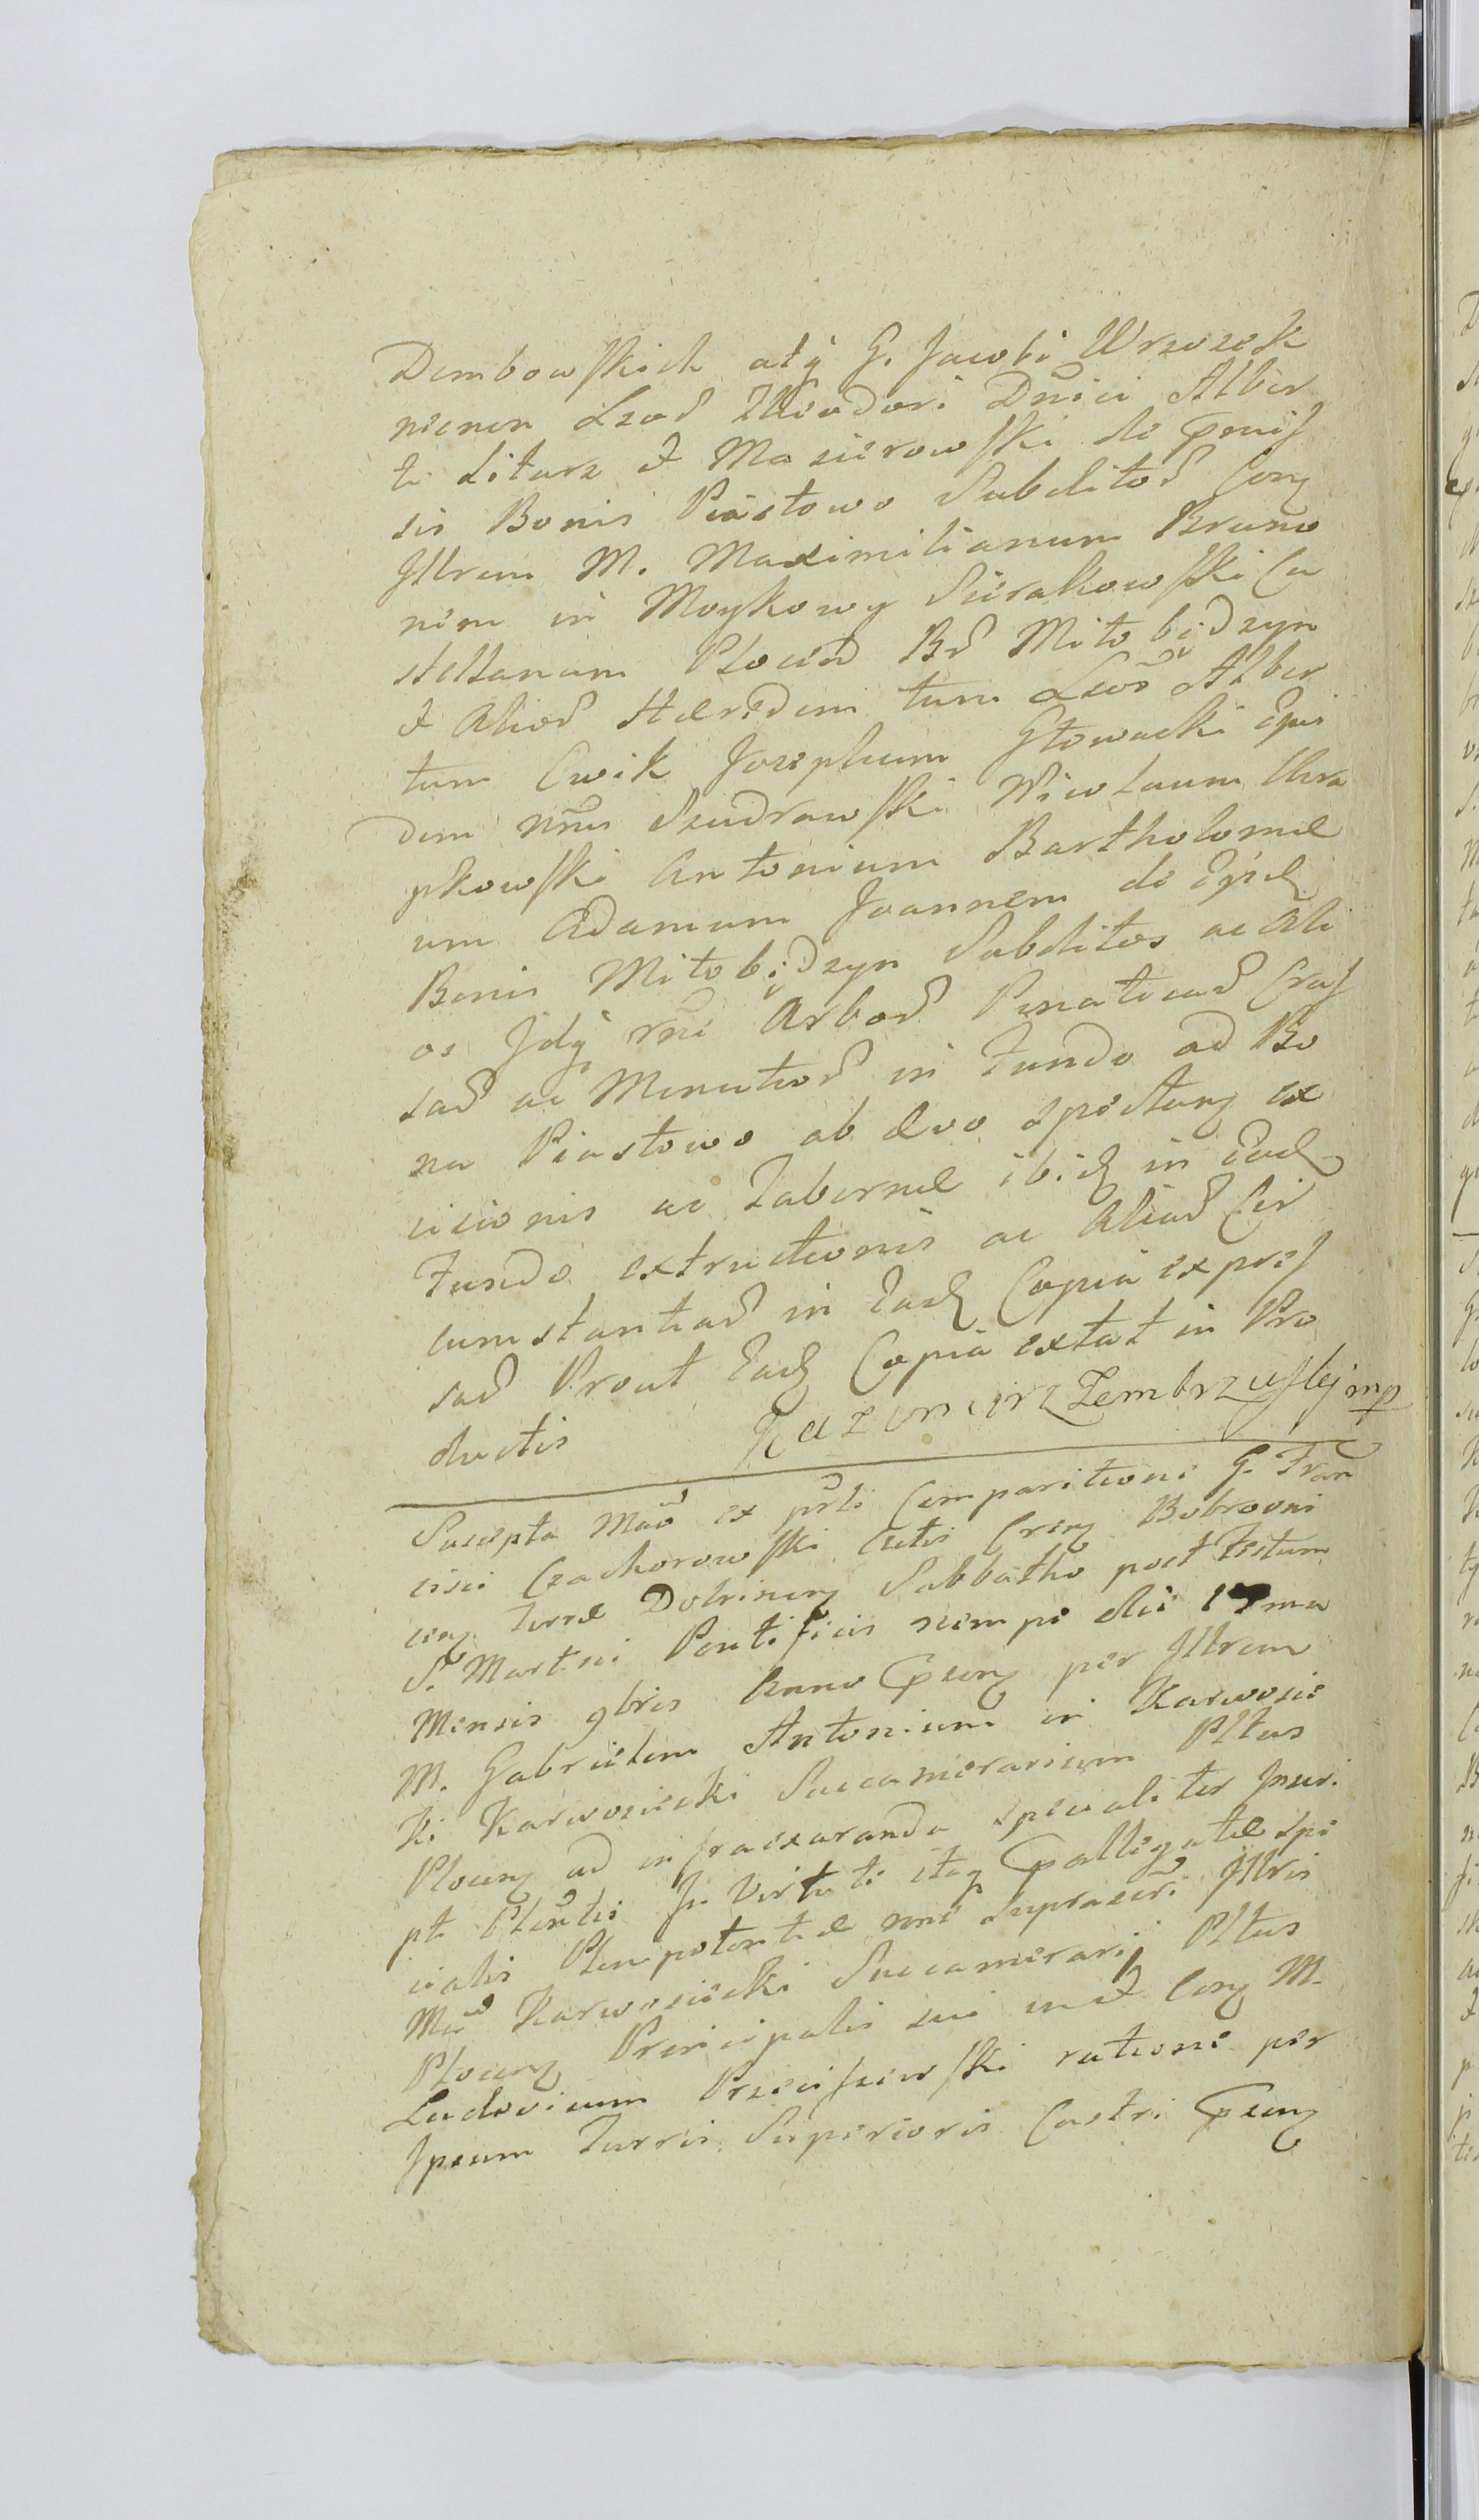 Dembowskich atq G. Jacobi Wrzosek
necnon Lrod Theodori Dnici Alber
ti Litarz et Mazierowski de pmis
sis Bonis Piastowo Subditod Conz
Jllrem M. Maximilianum Bruno
nem in Moykowy Sierakowski Ca
stellanum Plocen Bd Miłobędzyn
et Aliod Hæredem tum Lros Alber
tum Cwik Josephum Głowacki
dem nnus Szudrawski Nicolaum Chra
pkowski Antonium Bartholomæ
um Adamum Joannem de
Bonis Miłobędzyn Subditos ac Ali
os Jdq rne Arbod Pinaticad Cras
sad ac Minutiod in Fundo ad Bo
na Piastowo ab ævo spectanz ex
cicionis ac Tabernæ ibid in Eod
Fundo extructionis ac Aliad Cir
cumstantiad in Ead Copia expres
sad Prout Ead Copia extat in Pro
ductis Kazimirz Zembrzuski mp
Suscepta Mao ex psli Comparitione G. Fran
cisci Czachorowski Crenz Bobrovni
cenz Terræ Dobrinenz Sabbatho post Festum
S. Martini Pontificis nempe die 17ma
Mensis 9bris Anno pzenz per Jllrem
M. Gabrielem Antonium in Karwosie
ki Karwosiecki Succamerarium Pltus
Plocenz ad infraexaranda specialiter Jnscri
pt Plentis Jn Virtute itaq pallegatæ Spe
cialis Plenipotentiæ nne Suprascri Jllris
Mci Karwosiecki Succamerarij Pltus
Plocenz Principalis sui in et Conz M.
Ludovicum Przeciszewski ratione per
Jpsum Turris Superioris Castri pzenz